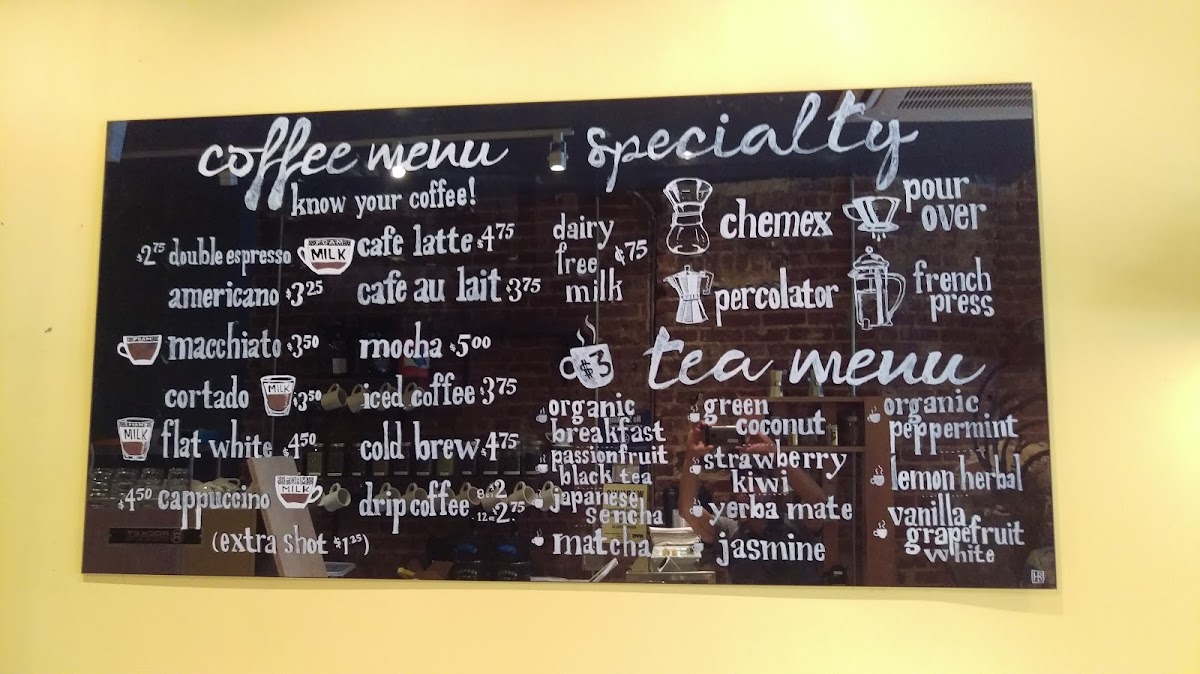 coffee menu
know your coffee!
$2.75 double espresso
FOAM
MILK
americano $3.25
macchiato $3.50
cortado
MILK
$3.50
MILK
flat white $4.50
$4.50 cappuccino
MILK
(extra shot $1.25)
cafe latte $4.75
cafe au lait $3.75
mocha $5.00
iced coffee $3.75
cold brew $4.75
drip coffee 8oz $2
12oz $2.75
specialty
dairy
free ¢75
milk
chemex
pour
over
percolator
french
press
$3
tea menu
organic
breakfast
passionfruit
black tea
japanese
sencha
matcha
green
coconut
strawberry
kiwi
yerba mate
jasmine
organic
peppermint
lemon herbal
vanilla
grapefruit
white